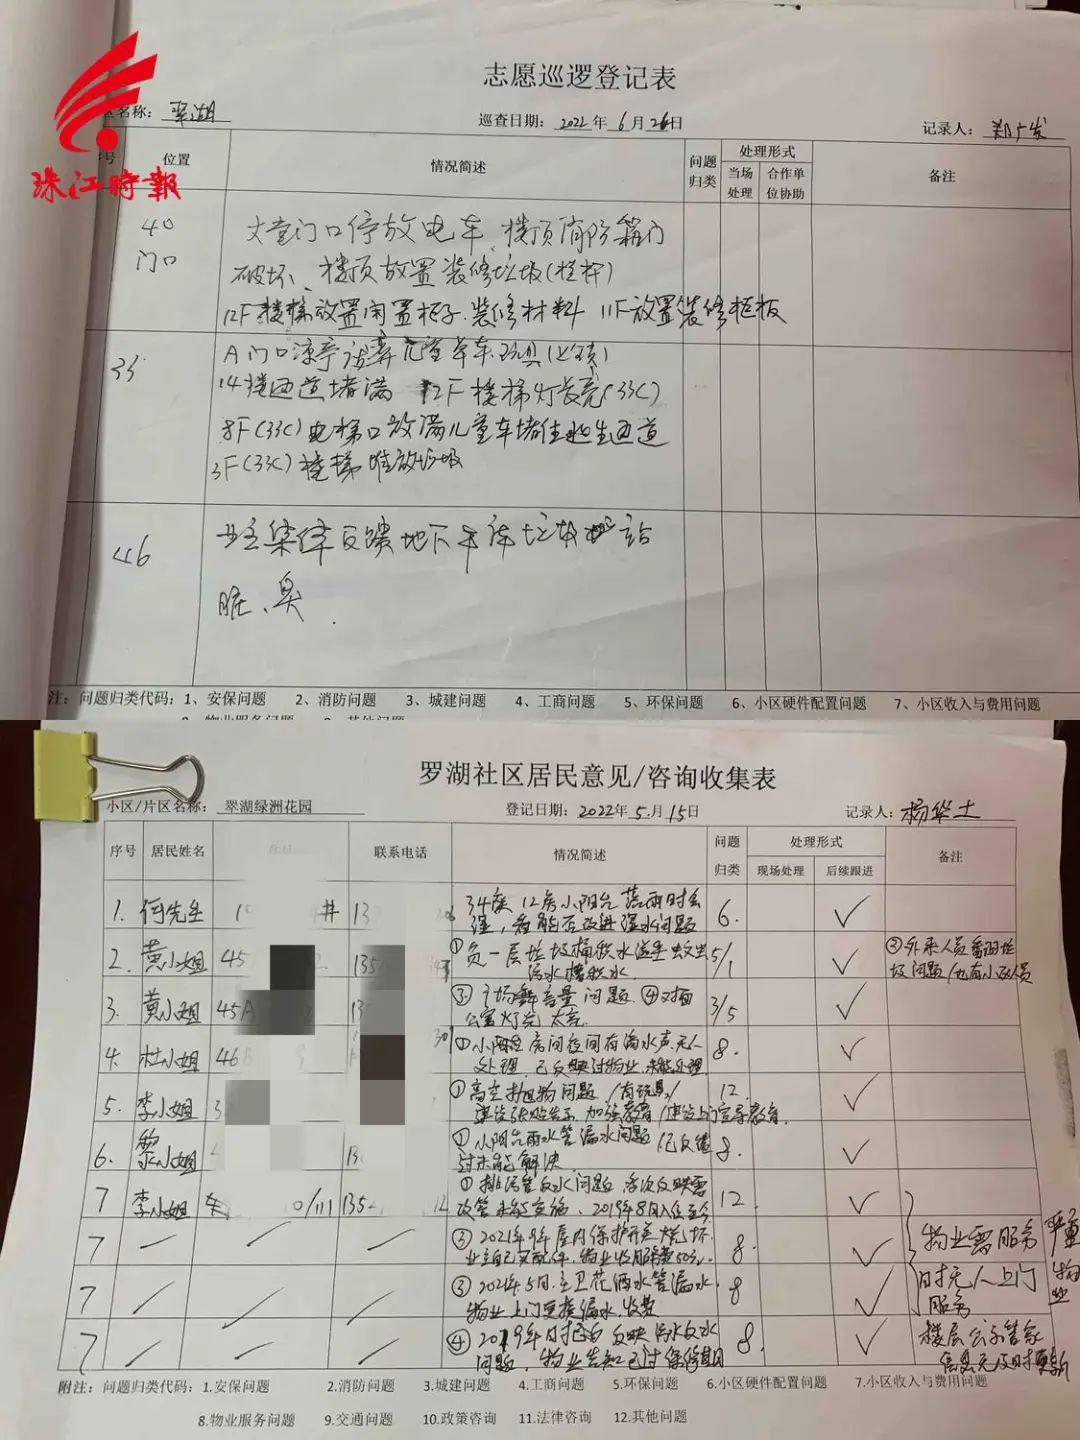 珠江時報
志愿巡逻登记表
区名称： 翠湖 巡查日期： 2022 年 6 月 26 日 记录人： 郑广发
序号 位置 情况简述 问题归类 处理形式 备注
当场处理 合作单位协助
40 门口
大堂门口停放电车、楼顶消防箱门
破坏、楼顶放置装修垃圾(栏杆)
12F楼梯放置闲置柜子.装修材料 11F放置装修柜板
33
A门口凉亭 儿童单车.玩具
14楼通道堵满 12F楼梯灯 (33C)
8F(33C)电梯口放满儿童车堵住逃生通道
3F(33C)楼梯堆放垃圾
46
业主集体反馈地下车库垃圾 站
脏、臭.
注：问题归类代码：1、安保问题 2、消防问题 3、城建问题 4、工商问题 5、环保问题 6、小区硬件配置问题 7、小区收入与费用问题
罗湖社区居民意见/咨询收集表
小区/片区名称： 翠湖绿洲花园 登记日期： 2022年 5月 15日 记录人： 杨华土
序号 居民姓名 联系电话 情况简述 问题归类 处理形式 备注
现场处理 后续跟进
1. 何先生 34座 12房小阳台 落雨时会
湿，看能否改进湿水问题 6. ✓
2. 黄小姐 45 135 ①负一层垃圾桶积水滋生蚊虫
污水槽积水. 5/1 ✓ ②外来人员 垃
圾问题/也有小区人员
3. 黄小姐 45A ③广场舞音量问题.④对面
公寓灯光太亮. 3/5 ✓
4. 杜小姐 46B ①小阳台房间夜间有滴水声,无人
处理.已反映过物业,未能处理. 8. ✓
5. 李小姐 3 ①高空抛物问题/有玩具/
建议张贴告示 加强教育/建议上门宣导教育. 12. ✓
6. 黎小姐 ①小阳台雨水管漏水问题 已反馈
过未能解决. 8. ✓
7 李小姐 0/111 ①排污管反水问题 多次反映需
改管未能实施，2019年8月入住至今 12 ✓
7 ②2021年9年屋内保护开关烧坏
业主自己买配件,物业收服务费50元. 8. ✓ 物业需服务
7 ③2021年5月.主卫花洒水管漏水
物业上门更换漏水.收费 8 ✓ 时无人上门
服务
7 ④2019年 反映污水反水
问题，物业告知已过保修期 8. ✓ 楼层公示管家
信息无及时更新
严重 物业
附注：问题归类代码：1.安保问题 2.消防问题 3.城建问题 4.工商问题 5.环保问题 6.小区硬件配置问题 7.小区收入与费用问题
8.物业服务问题 9.交通问题 10.政策咨询 11.法律咨询 12.其他问题